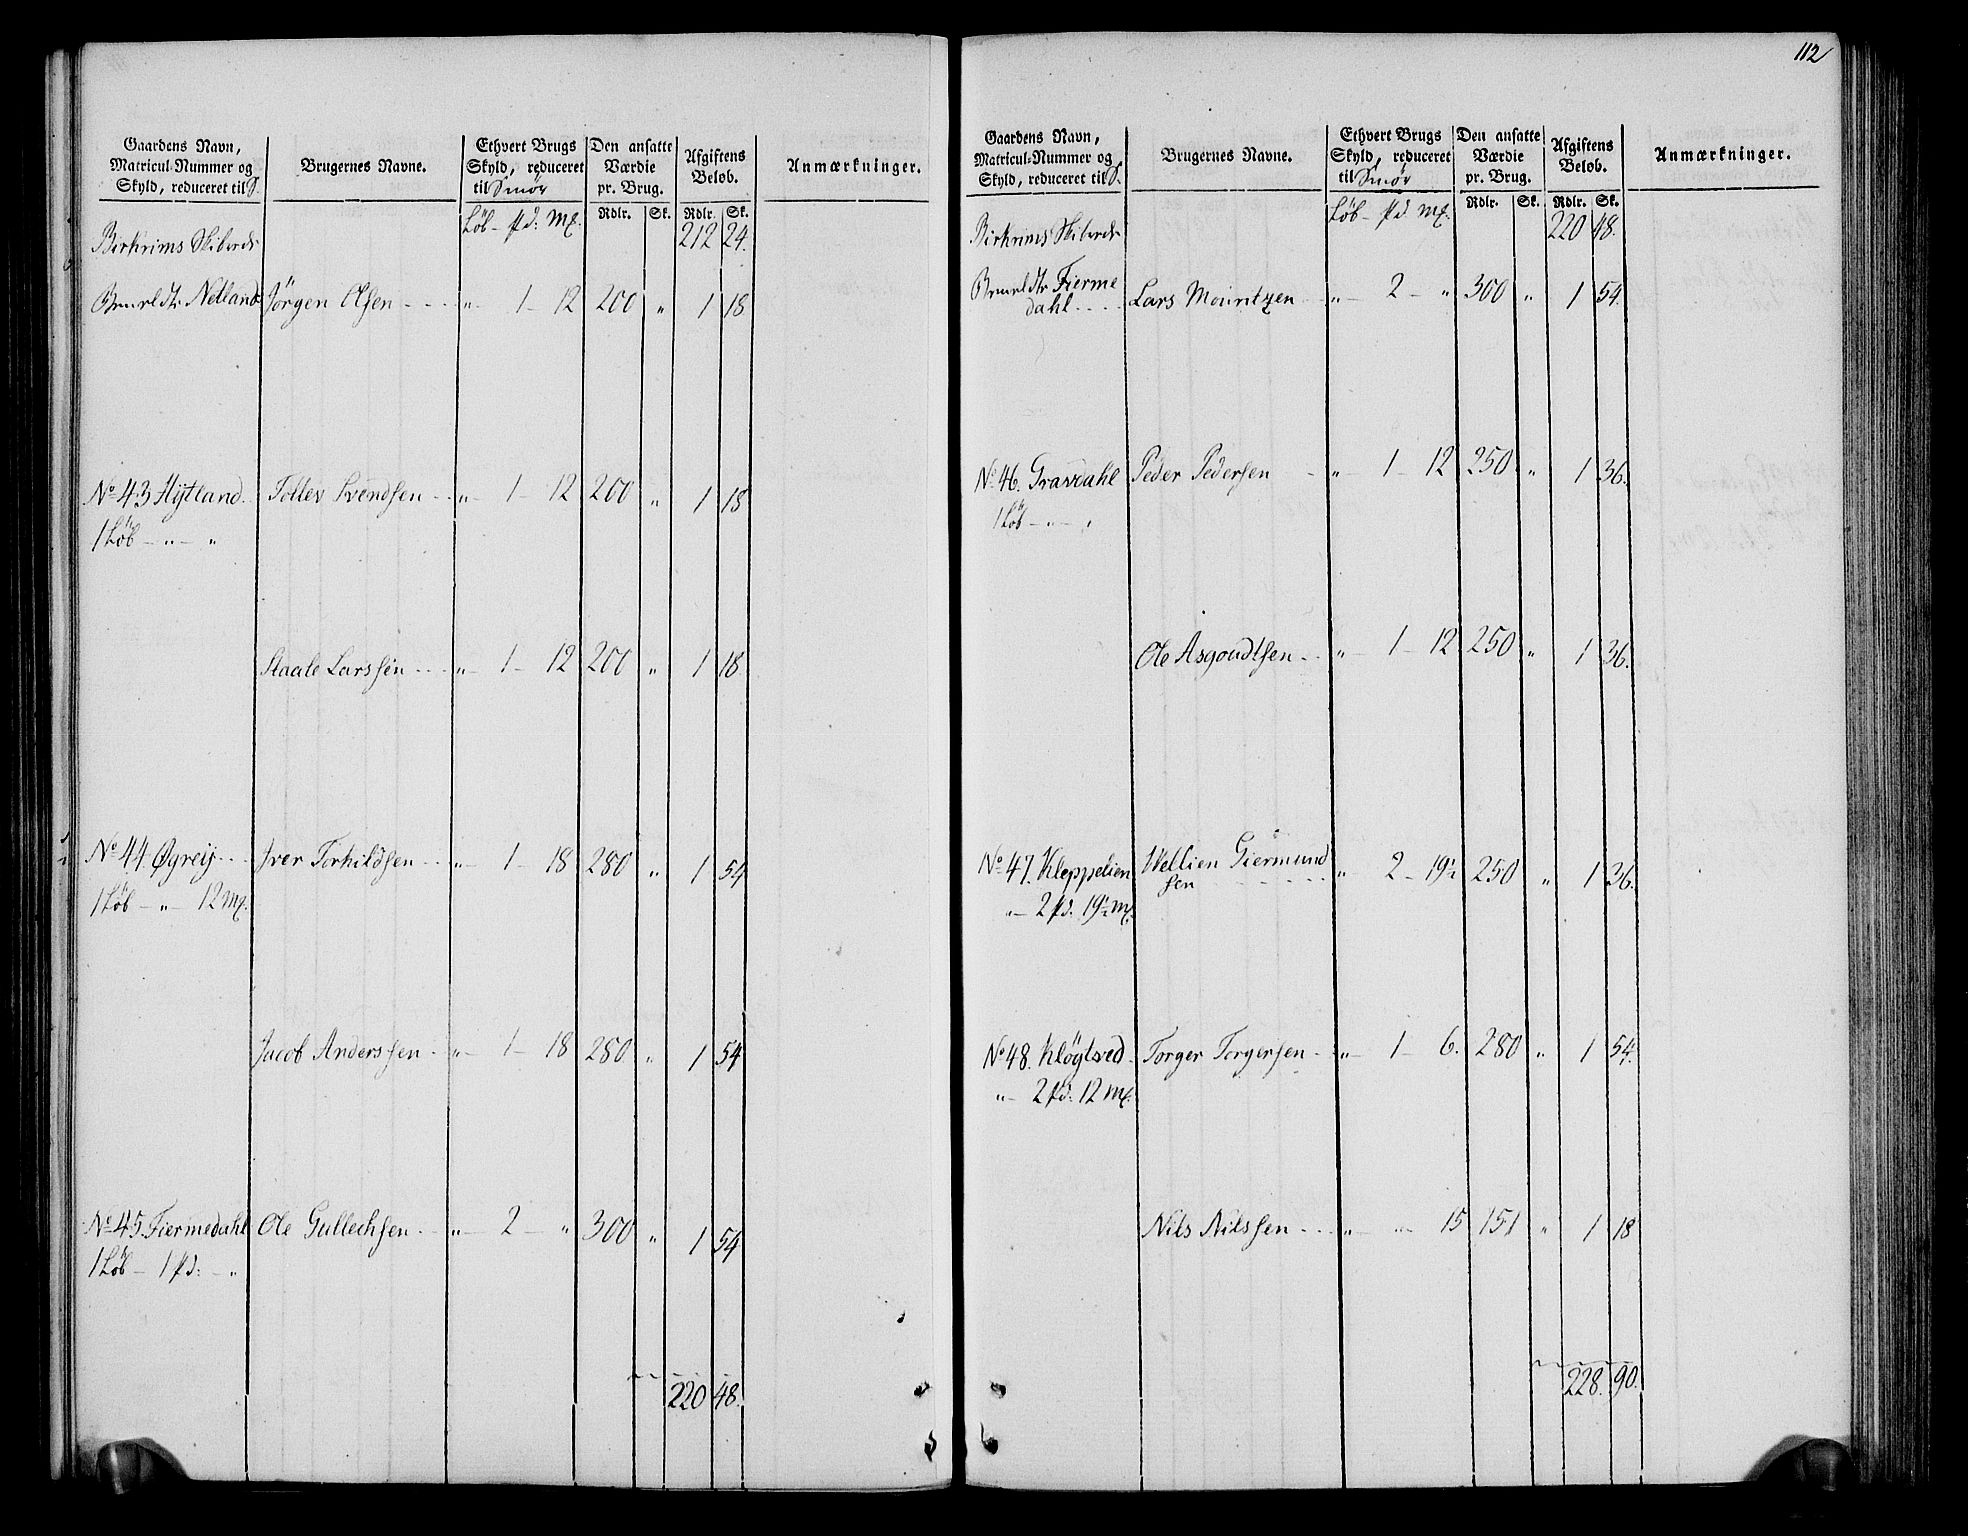 Gaardens Navn, Matricul-Nummer og Skyld, reduceret til S. Brugernes Navne. Ethvert Brugs Skyld, reduceret til Smör Den ansatte Værdie pr. Brug. Afgiftens Belöb. Anmærkninger.
Löb - pd: mk. Rdlr. Sk. Rdlr. Sk.
Birkrims Skibreds 212 24.
Nelland Jörgen Olsen - - - - „ - 1 - 12 200 „ 1 18
No 43 Hytland. Tollev Svendsen - - „ - 1 - 12 200 „ 1 18
1 Löb - „ - „
Staale Larssen - - - „ - 1 - 12 200 „ 1 18
No 44. Øgreij - - - Iver Torkildsen - - - „ - 1 - 18 280 „ 1 54
1 Löb - „ - 12 mk.
Jacob Anderssen - „ - 1 - 18 280 „ 1 54
No 45. Fiermedahl Ole Gullechsen - - „ - 2 - „ 300 „ 1 54
1 Löb - 1 pd: - „
220 48.
112
Gaardens Navn, Matricul-Nummer og Skyld, reduceret til S. Brugernes Navne. Ethvert Brugs Skyld, reduceret til Smör Den ansatte Værdie pr. Brug. Afgiftens Belöb. Anmærkninger.
Löb - pd mk. Rdlr. Sk. Rdlr. Sk.
Birkrims Skibreds 220 48.
Fierme
dahl - - - - Lars Mouritzen „ - 2 - „ 300 „ 1 54.
No 46. Gravdahl Peder Pedersen - „ - 1 - 12 250 „ 1 36.
1 Löb - „ - „
Ole Asgoudtsen - - „ - 1 - 12 250 „ 1 36.
No 47. Kleppelien Wellien Giermund
sen - - - - - - „ 2 - 19½ 250 „ 1 36.
„ - 2 pd: 19½ mk.
No 48. Kløgtved - Torger Torgersen - - „ - 1 - 6. 280 „ 1 54.
„ - 2 pd: 12 mk.
Nils Nilssen - - - „ - „ - 15 151 „ 1 18
228. 90.